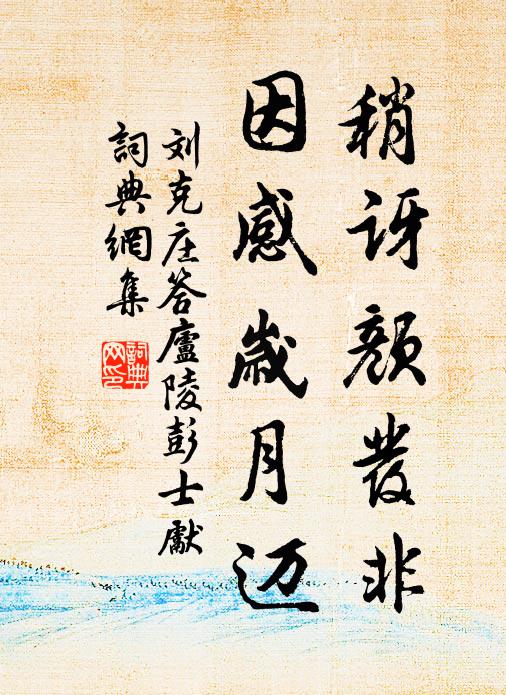 稍讶颜发非
因感岁月迈
刘克庄答廬陵彭士献
詞典網集
詞典网印